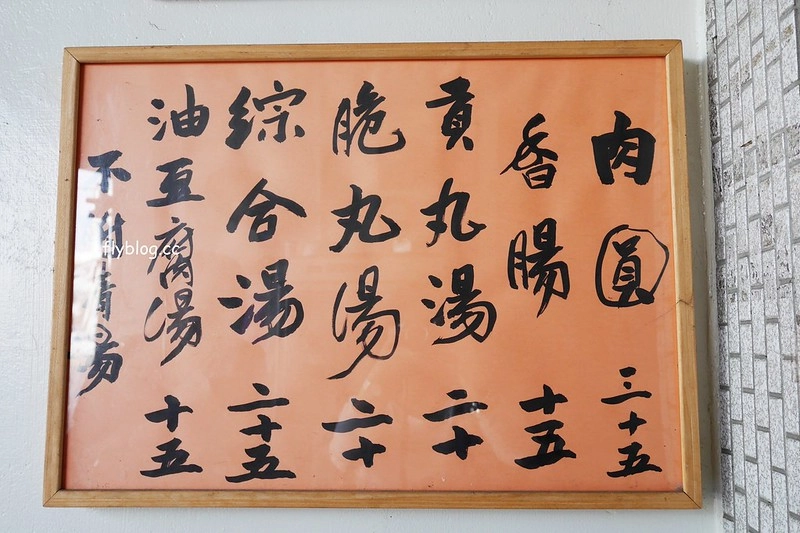 肉圓 三十五
香腸 十五
貢丸湯 二十
脆丸湯 二十
綜合湯 二十五
油豆腐湯 十五
不附清湯
flyblog.cc